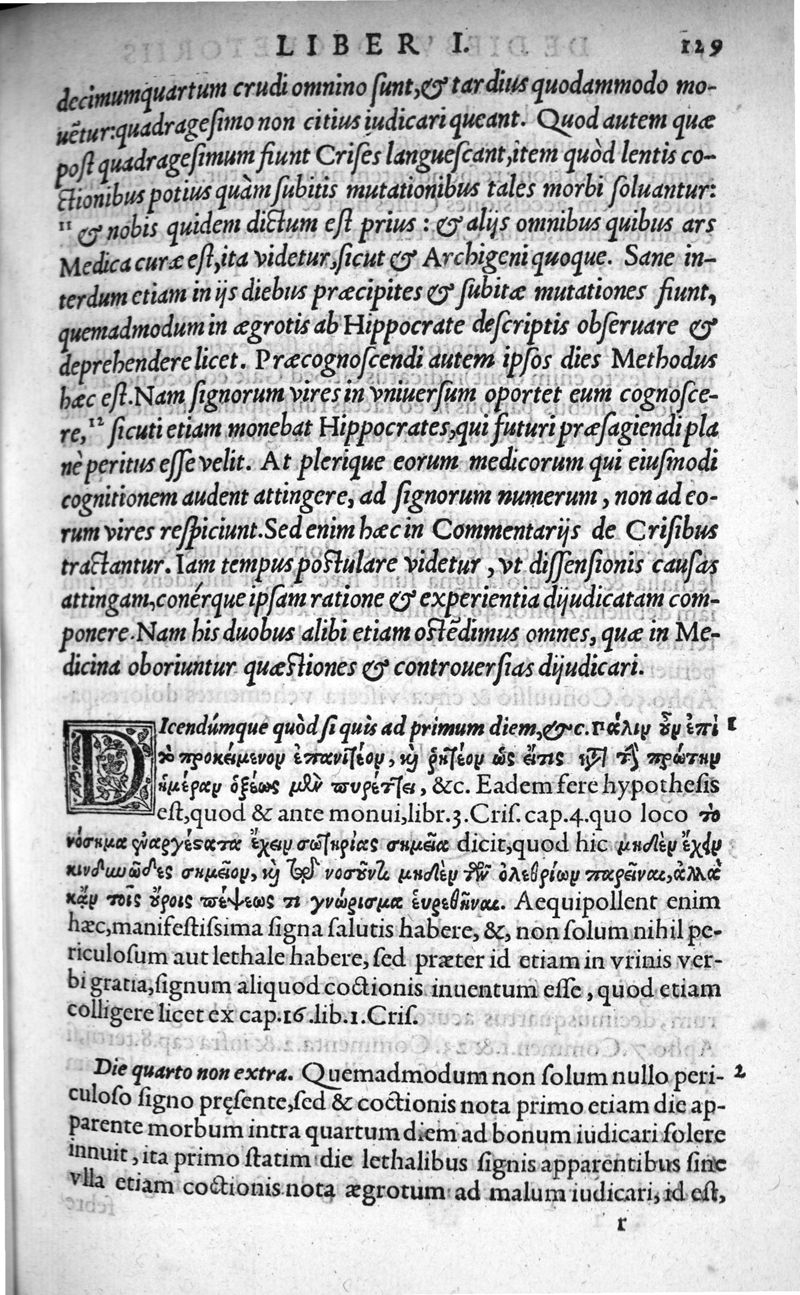 LIBER I. 129
decimumquartum crudi omnino ſunt,& tardius quodammodo mo-
uẽtur:quadrageſimo non citius iudicari queant. Quod autem quæ
poſt quadrageſimum fiunt Criſes langueſcant,item quòd lentis co-
ctionibus potius quàm ſubitis mutationibus tales morbi ſoluantur:
11 & nobis quidem dictum eſt prius : & alijs omnibus quibus ars
Medica curæ eſt,ita videtur,ſicut & Archigeni quoque. Sane in-
terdum etiam in ijs diebus præcipites & ſubitæ mutationes fiunt,
quemadmodum in ægrotis ab Hippocrate deſcriptis obſeruare &
deprehendere licet. Præcognoſcendi autem ipſos dies Methodus
hæc eſt.Nam ſignorum vires in vniuerſum oportet eum cognoſce-
re,12 ſicuti etiam monebat Hippocrates,qui futuri præſagiendi pla
nè peritus eſſe velit. At plerique eorum medicorum qui eiuſmodi
cognitionem audent attingere, ad ſignorum numerum, non ad eo-
rum vires reſpiciunt.Sed enim hæc in Commentarijs de Criſibus
tractantur. Iam tempus poſtulare videtur, vt diſſenſionis cauſas
attingam,conérque ipſam ratione & experientia dijudicatam com-
ponere.Nam his duobus alibi etiam oſtẽdimus omnes, quæ in Me-
dicina oboriuntur quæſtiones & controuerſias dijudicari.
DIcendúmque quòd ſi quis ad primum diem,&c. Γάλιν οὖν ἐπὶ 1
τὸ προκείμενον ἐπανιτέον, καὶ ῥητέον ὡς εἴτις κατὰ τὴν πρώτην
ἡμέραν ὀξέως μὲν πυρέττει, &c. Eadem fere hypotheſis
eſt,quod & ante monui,libr.3.Criſ. cap.4.quo loco τὸ
νόσημα ἐναργέστατα ἔχειν σωτηρίας σημεῖα dicit,quod hic μηδὲν ἔχειν
κινδυνῶδες σημεῖον, καὶ τῷ νοσοῦντι μηδὲν τῶν ὀλεθρίων παρεῖναι,ἀλλὰ
κἂν τοῖς οὔροις πέψεως τι γνώρισμα εὑρεθῆναι. Aequipollent enim
hæc,manifeſtiſſima ſigna ſalutis habere, &, non ſolum nihil pe-
riculoſum aut lethale habere, ſed præter id etiam in vrinis ver-
bi gratia,ſignum aliquod coctionis inuentum eſſe, quod etiam
colligere licet ex cap.16.lib.1.Criſ.
Die quarto non extra. Quemadmodum non ſolum nullo peri- 2
culoſo ſigno pręſente,ſed & coctionis nota primo etiam die ap-
parente morbum intra quartum diem ad bonum iudicari ſolere
innuit, ita primo ſtatim die lethalibus ſignis apparentibus ſine
vlla etiam coctionis nota ægrotum ad malum iudicari, id eſt,
r